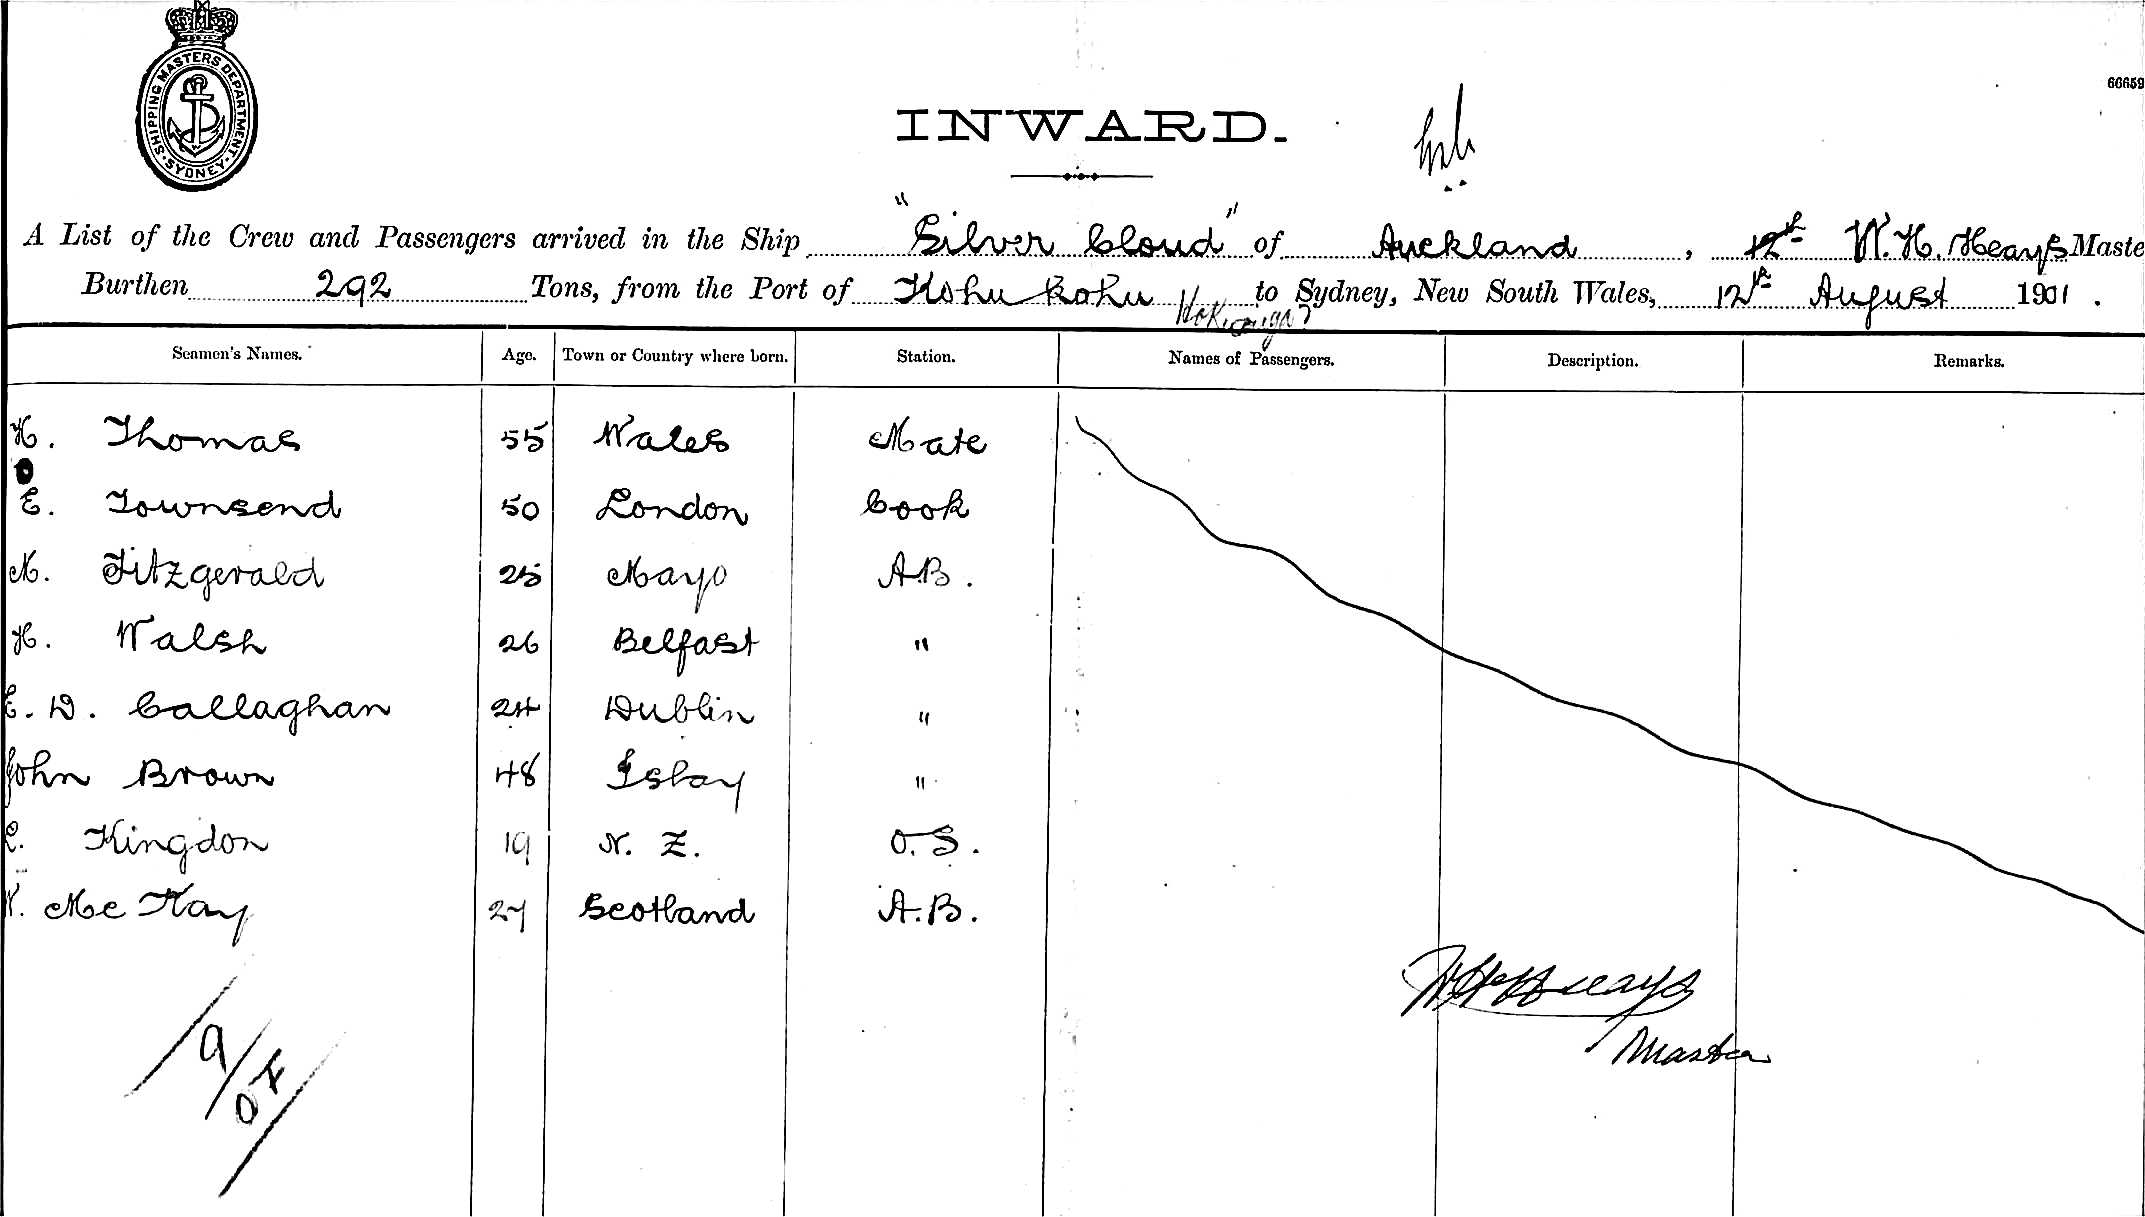 SHIPPING MASTERS DEPARTMENT. SYDNEY
66659
INWARD.
A List of the Crew and Passengers arrived in the Ship "Silver Cloud" of Auckland, 12th W. H. Heays Maste
Burthen 292 Tons, from the Port of Kohu Kohu to Sydney, New South Wales, 12th August 1901.
Hokianga
Seamen's Names. Age. Town or Country where born. Station. Names of Passengers. Description. Remarks.
H. Thomas 55 Wales Mate
E. Townsend 50 London Cook
M. Fitzgerald 25 Mayo A.B.
H. Walsh 26 Belfast "
E. D. Callaghan 24 Dublin "
John Brown 48 Islay "
Kingdon 19 N. Z. O.S.
Mc Kay 27 Scotland A.B.
W H Heays
Master
9